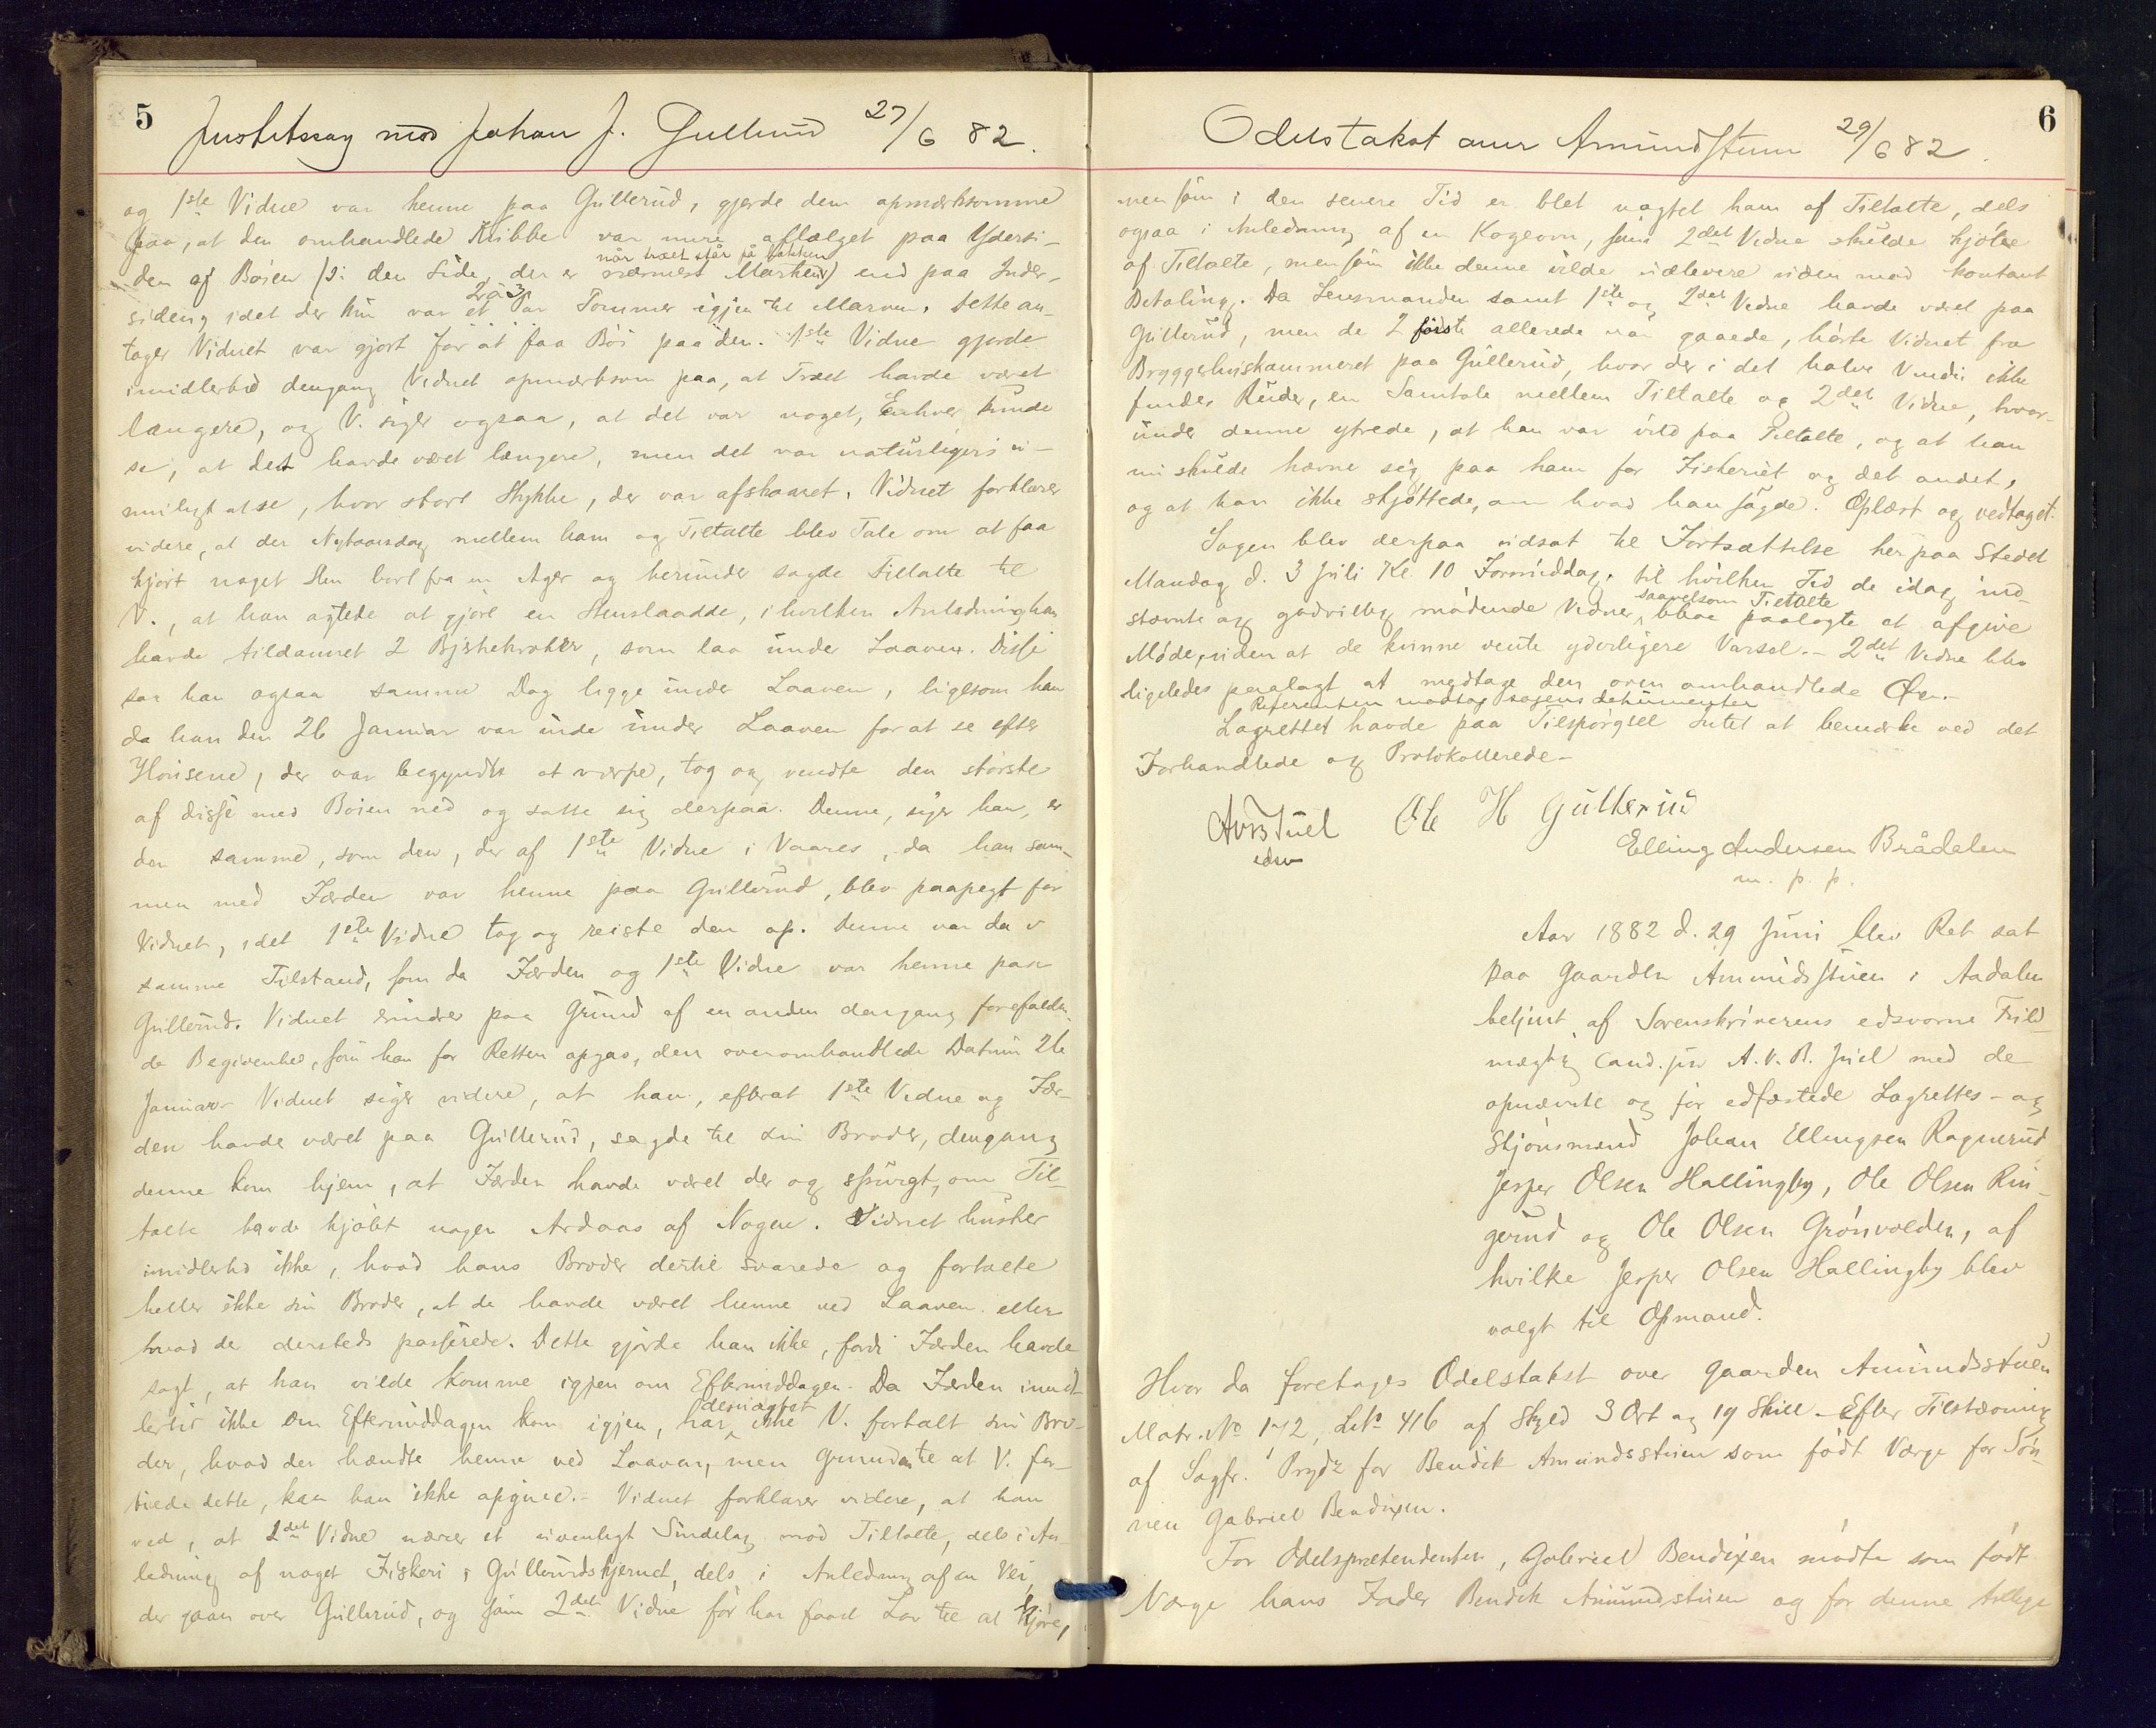 5
Justitssag mod Johan J. Gullerud 27/6 82.
og 1ste Vidne var henne paa Gullerud, gjorde dem opmærksomme
paa, at den omhandlede Kribbe var mere aflælget paa Ydersi-
når træet står på bakken
den af Bøien (ɔ: den Side, der er nærmest Marken) end paa Inder-
2 à 3
siden, idet der kun var et Par Tommer igjen til Marven. Dette an-
tager Vidnet var gjort for at faa Bøi paa den. 1ste Vidne gjorde
imidlertid dengang Vidnet opmærksom paa, at Træet havde været
længere, og V. siger ogsaa, at det var noget, Enhver kunde
se, at det havde været længere, men det var naturligvis u-
muligt at se, hvor stort Stykke, der var afskaaret. Vidnet forklarer
videre, at der Nytaarsdag mellem ham og Tiltalte blev Tale om at faa
kjørt noget Sten bort fra en Ager og herunder sagde Tiltalte til
V., at han agtede at gjøre en Stenslaadde, i hvilken Anledning han
havde tildannet 2 Birkekroker, som laa under Laaven. Disse
saa han ogsaa samme Dag ligge under Laaven, ligesom han
da han den 26 Januar var inde under Laaven for at se efter
Hønsene, der var begyndt at værpe, tog og vendte den største
af disse med Bøien ned og satte sig derpaa. Denne, siger han, er
den samme, som den, der af 1ste Vidne i Vaares, da han sam-
men med Færden var henne paa Gullerud, blev paapegt for
Vidnet, idet 1ste Vidne tog og reiste den op. Denne var da i
samme Tilstand, som da Færden og 1ste Vidne var henne paa
Gullerud. Vidnet erindrer paa Grund af en anden dengang forefalden-
de Begivenhed, som han for Retten opgav, den ovenomhandlede Datum 26
Januar. Vidnet siger videre, at han, efterat 1ste Vidne og Fær-
den havde været paa Gullerud, sagde til sin Broder, dengang
denne kom hjem, at Færden havde været der og spurgt, om Til-
talte havde kjøbt nogen Ardaas af Nogen. Vidnet husker
imidlertid ikke, hvad hans Broder dertil svarede og fortalte
heller ikke sin Broder, at de havde været henne ved Laaven eller
hvad der dersteds passerede. Dette gjorde han ikke, fordi Færden havde
sagt, at han vilde komme igjen om Eftermiddagen. Da Færden imid-
desuagtet
lertid ikke om Eftermiddagen kom igjen, har ikke V. fortalt sin Bro-
der, hvad der hændte henne ved Laaven, men Grunden til at V. for-
tiede dette, kan han ikke opgive. - Vidnet forklarer videre, at han
ved, at 2det Vidne nærer et uvenligt Sindelag mod Tiltalte, dels i An-
ledning af noget Fiskeri i Gullerudskjernet, dels i Anledning af en Vei,
der gaar over Gullerud, og som 2det Vidne før har faaet Lov til at kjøre,
6
Odelstakst over Amundstuen 29/6 82.
men som i den senere Tid er blet nægtet ham af Tiltalte, dels
ogsaa i Anledning af en Kogeovn, som 2det Vidne skulde kjøbe
af Tiltalte, men som ikke denne vilde udlevere uden mod kontant
Betaling. Da Lensmanden samt 1ste og 2det Vidne havde været paa
Gullerud, men de 2 første allerede var gaaede, hørte Vidnet fra
Bryggerhuskammeret paa Gullerud, hvor der i det halve Vindu ikke
findes Ruder, en Samtale mellem Tiltalte og 2det Vidne, hvor-
under denne ytrede, at han var vild paa Tiltalte, og at han
nu skulde hævne sig paa ham for Fisheriet og det andet,
og at han ikke skjøttede, om hvad han sagde. Oplæst og vedtaget.
Sagen blev derpaa udsat til Fortsættelse her paa Stedet
Mandag d. 3 Juli Kl. 10 Formiddag, til hvilken Tid de idag ind-
saavelsom Tiltalte
stevnte og godvillig mødende Vidner, blev paalagte at afgive
Møde, uden at de kunne vente yderligere Varsel. - 2det Vidne blev
ligeledes paalagt at medtage den oven omhandlede Øx. -
Referenten modtog sagens dokumenter
Lagrettet havde paa Tilspørgsel Intet at bemærke ved det
Forhandlede og Protokollerede. -
AvRJuel Ole H Gullerud
edsv Elling Andersen Brådalen
m. p. p.
Aar 1882 d. 29 Juni blev Ret sat
paa Gaarden Amundsstuen i Aadalen
betjent af Sorenskriverens edsvorne Fuld-
mægtig Cand. jur A. v. R. Juel med de
opnævnte og før edfæstede Lagrettes- og
Skjønsmænd Johan Ellingsen Ragnerud,
Jesper Olsen Hallingby, Ole Olsen Rin-
gerud og Ole Olsen Grønvolden, af
hvilke Jesper Olsen Hallingby blev
valgt til Opmand.
Hvor da foretoges Odelstakst over Gaarden Amundsstuen
Matr. No 172, L.No 416 af Skyld 3 Ort og 19 Skill - Efter Tilstævning
af Sagfr. Prydz for Bendik Amundsstuen som født Værge for Søn-
nen Gabriel Bendixen.
For Odelsprætendenten, Gabriel Bendixen mødte som født
Værge hans Fader Bendik Amundstuen og for denne tillige